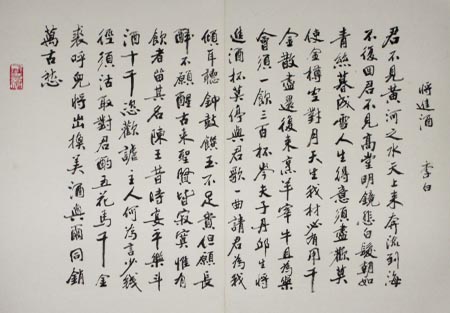 將進酒 李白
君不見黃河之水天上來奔流到海
不復回君不見高堂明鏡悲白髮朝如
青絲暮成雪人生得意須盡歡莫
使金樽空對月天生我材必有用千
金散盡還復來烹羊宰牛且為樂
會須一飲三百杯岑夫子丹邱生將
進酒杯莫停與君歌一曲請君為我
傾耳聽鐘鼓饌玉不足貴但願長
醉不願醒古來聖賢皆寂寞惟有
飲者留其名陳王昔時宴平樂斗
酒十千恣歡謔主人何為言少錢
徑須沽取對君酌五花馬千金
裘呼兒將出換美酒與爾同銷
萬古愁